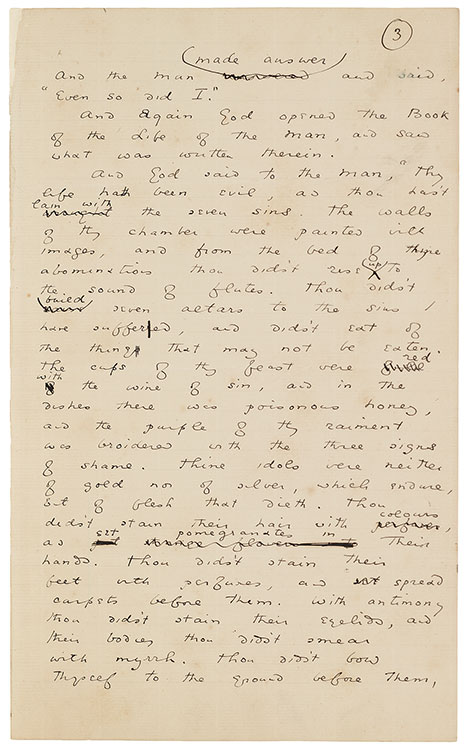 3
made answer
And the man answered and said,
"Even so did I."
And Again God opened the Book
of the Life of the Man, and saw
what was written therein.
And God said to the Man, "Thy
life hath been evil, and thou hast
lain with
the seven sins. The walls
of thy chamber were painted with
images, and from the bed of thine
up
abominations thou didst rise to
the sound of flutes. Thou didst
build
seven altars to the sins I
have suffered, and didst eat of
the thing that may not be eaten.
red
The cups of thy feast were
with
the wine of sin, and in the
dishes there was poisonous honey,
and the purple of thy raiment
was broidered with the three signs
of shame. Thine idols were neither
of gold nor of silver, which endure,
but of flesh that dieth. Thou
colours
didst stain their hair with perfumes,
set pomegranates in
and their
hands. Thou didst stain their
feet with perfumes, and spread
carpets before them. With antimony
thou didst stain their Eyelids, and
their bodies thou didst smear
with myrrh. Thou didst bow
thyself to the ground before them,